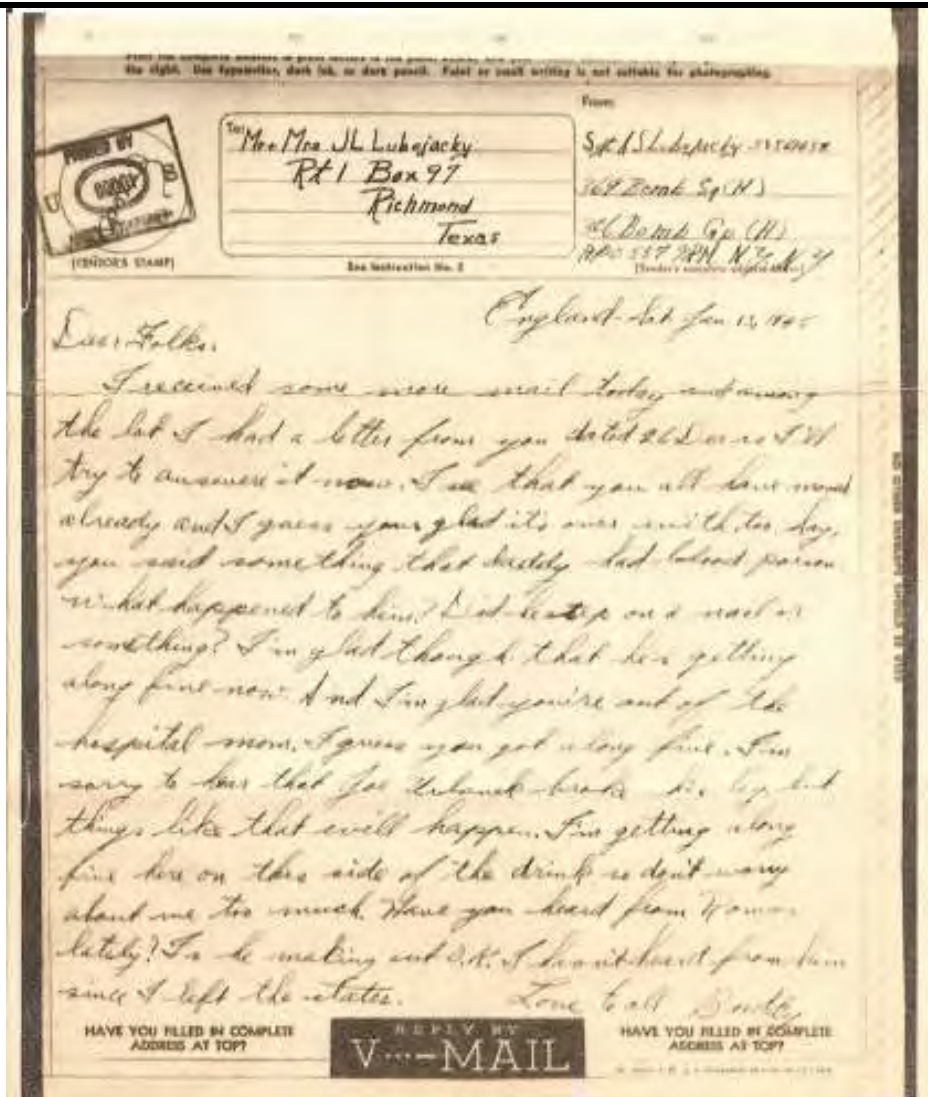 the right. Use typewriter, dark ink, or dark pencil. Faint or small writing is not suitable for photographing.
PASSED BY
U S
(CENSOR'S STAMP)
To:
Mr. & Mrs JL Lubojacky
Rt 1 Box 97
Richmond
Texas
See Instruction No. 2
From:
Sgt A S Lubojacky
369 Bomb Sq (H)
306 Bomb Gp (H)
APO 557 % PM N.Y. N.Y
(Sender's complete address above)
England - Sat Jan 13, 1945
Dear Folks,
I received some more mail today and among
the lot I had a letter from you dated 26 Dec so I'll
try to answere it now. I see that you all have moved
already and I guess your glad it's over with too. Say,
you said something that daddy had blood poison
what happened to him? Did he step on a nail or
something? I'm glad though that he's getting
along fine now. And I'm glad you're out of the
hospital mom. I guess you got along fine. I'm
sorry to hear that Joe broke his leg but
things like that will happen. I'm getting along
fine here on this side of the drink so don't worry
about me too much. Have you heard from Roman
lately? Is he making out O.K. I havn't heard from him
since I left the states. Love to all
HAVE YOU FILLED IN COMPLETE
ADDRESS AT TOP?
REPLY BY
V···—MAIL
HAVE YOU FILLED IN COMPLETE
ADDRESS AT TOP?